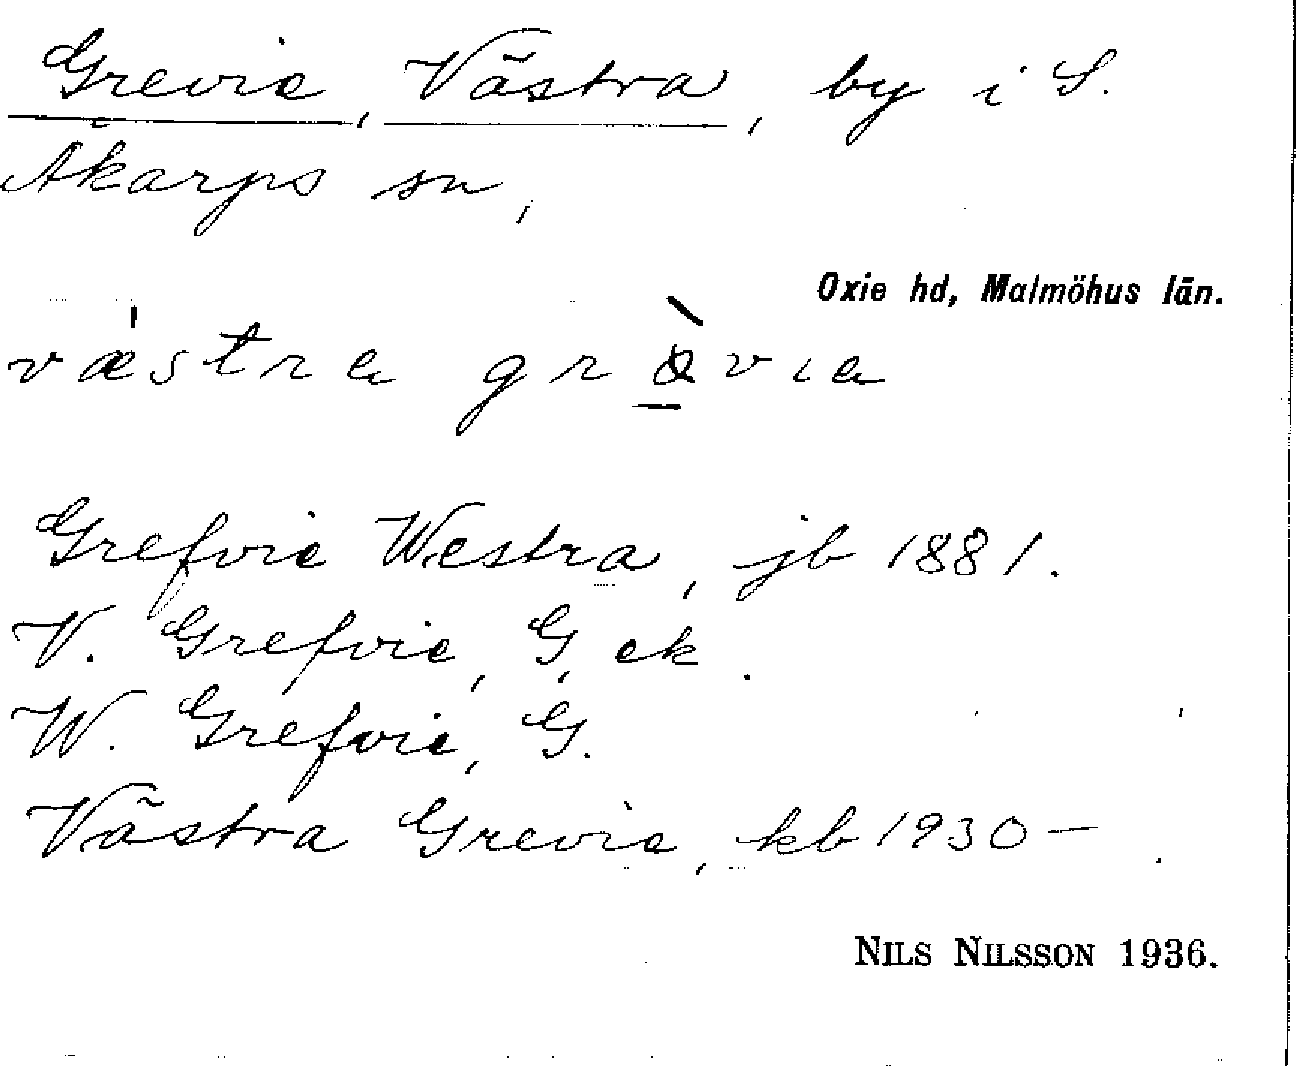 Grevie, Västra, by i S.
Åkarps sn,
Oxie hd, Malmöhus län.
væ̍stra grə̱̀via
Grefvie Westra, jb 1881.
V. Grefvie, G, ek.
W. Grefvie, G.
Västra Grevie, kb 1930—.
NILS NILSSON 1936.